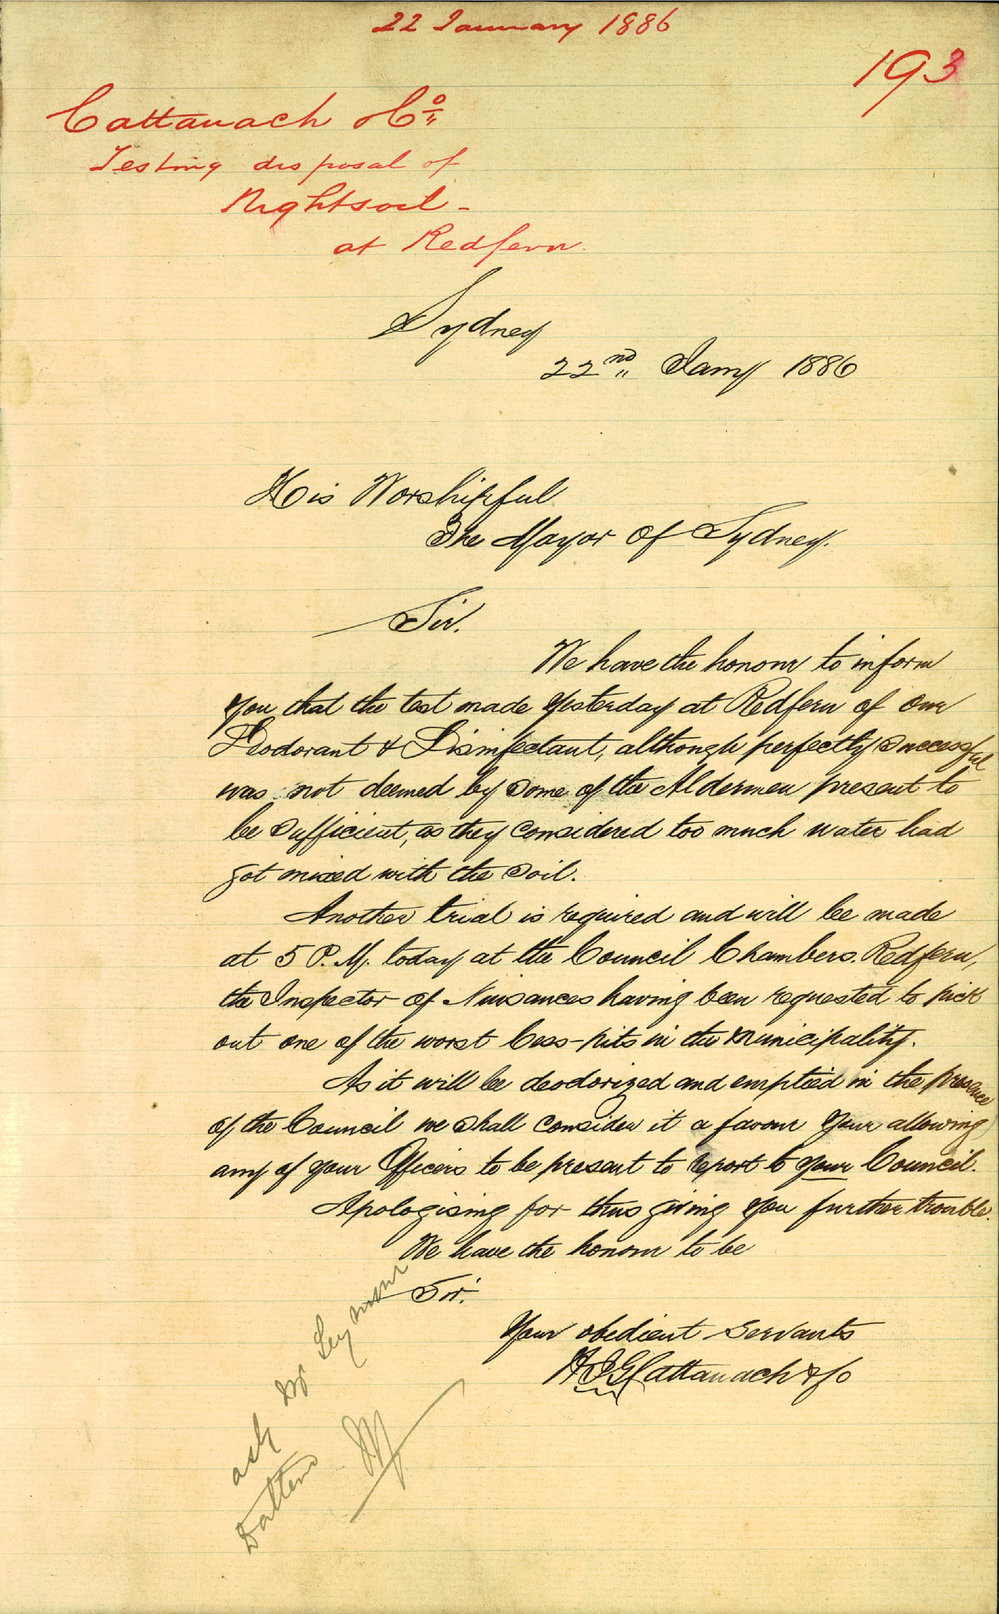 22 January 1886
193
Cattanach & Co
Testing disposal of
Nightsoil -
at Redfern.
Sydney
22nd Jany 1886
His Worshipful
The Mayor of Sydney.
Sir.
We have the honour to inform
you that the test made yesterday at Redfern of our
Deodorant & Disinfectant, although perfectly successful
was not deemed by some of the Aldermen present to
be sufficient, as they considered too much water had
got mixed with the soil.
Another trial is required and will be made
at 5 P.M. today at the Council Chambers. Redfern,
the Inspector of Nuisances having been requested to pick
out one of the worst Cess-pits in the Municipality.
As it will be deodorized and emptied in the presence
of the Council we shall consider it a favour your allowing
any of your Officers to be present to report to your Council.
Apologising for thus giving you further trouble.
We have the honour to be
Sir.
Your obedient servants
Cattanach & Co
ask Mr Seymour